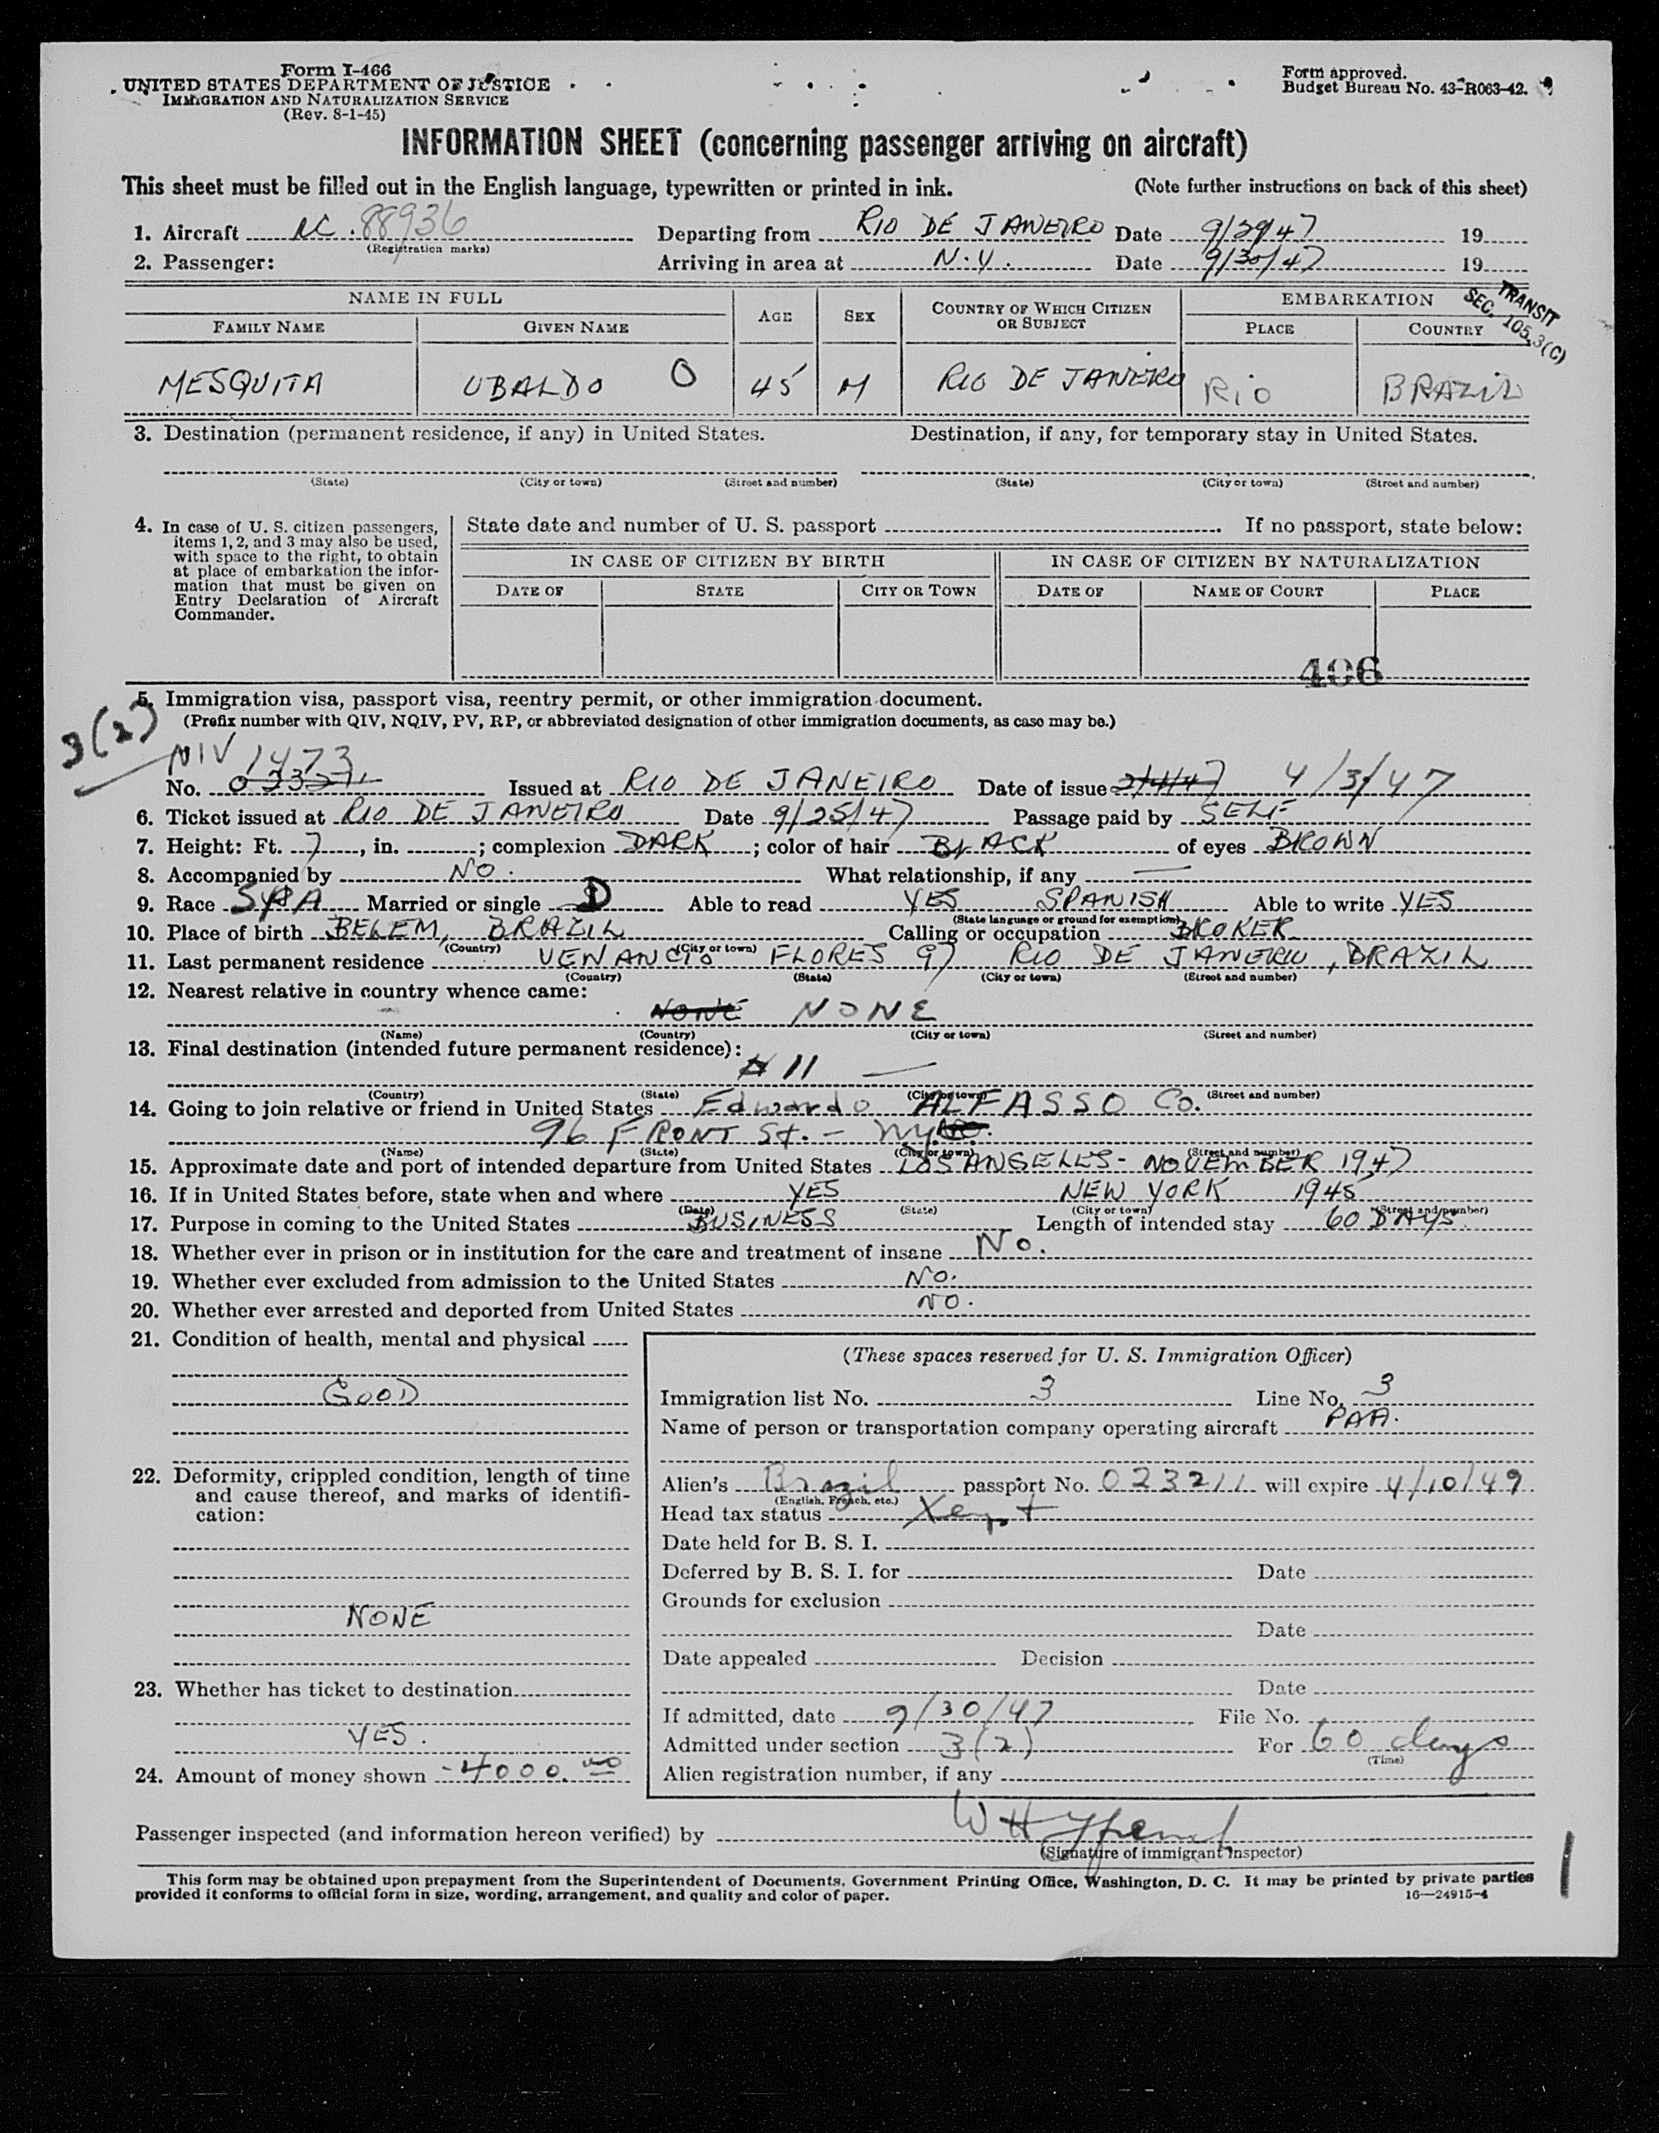 Form I-466
UNITED STATES DEPARTMENT OF JUSTICE
IMMIGRATION AND NATURALIZATION SERVICE
(Rev. 8-1-45)
Form approved.
Budget Bureau No. 43-R063-42.
INFORMATION SHEET (concerning passenger arriving on aircraft)
This sheet must be filled out in the English language, typewritten or printed in ink. (Note further instructions on back of this sheet)
1. Aircraft NC. 88936 Departing from RIO DE JANEIRO Date 9/29/47 19
(Registration marks)
2. Passenger: Arriving in area at N.Y. Date 9/30/47 19
TRANSIT
SEC. 105.3(C)
NAME IN FULL AGE SEX COUNTRY OF WHICH CITIZEN OR SUBJECT EMBARKATION
FAMILY NAME GIVEN NAME PLACE COUNTRY
MESQUITA UBALDO O 45 M RIO DE JANEIRO RIO BRAZIL
3. Destination (permanent residence, if any) in United States. Destination, if any, for temporary stay in United States.
(State) (City or town) (Street and number) (State) (City or town) (Street and number)
4. In case of U. S. citizen passengers, items 1, 2, and 3 may also be used, with space to the right, to obtain at place of embarkation the information that must be given on Entry Declaration of Aircraft Commander.
State date and number of U. S. passport If no passport, state below:
IN CASE OF CITIZEN BY BIRTH IN CASE OF CITIZEN BY NATURALIZATION
DATE OF STATE CITY OR TOWN DATE OF NAME OF COURT PLACE
406
5. Immigration visa, passport visa, reentry permit, or other immigration document.
(Prefix number with QIV, NQIV, PV, RP, or abbreviated designation of other immigration documents, as case may be.)
3(2)
NIV 1473
No. Issued at RIO DE JANEIRO Date of issue 4/3/47
6. Ticket issued at RIO DE JANEIRO Date 9/25/47 Passage paid by SELF
7. Height: Ft. 7, in. ; complexion DARK; color of hair BLACK of eyes BROWN
8. Accompanied by NO. What relationship, if any —
9. Race Married or single D Able to read YES SPANISH Able to write YES
(State language or ground for exemption)
10. Place of birth BELEM, BRAZIL Calling or occupation BROKER
(Country) (City or town)
11. Last permanent residence VENANCIO FLORES 97 RIO DE JANEIRO, BRAZIL
(Country) (State) (City or town) (Street and number)
12. Nearest relative in country whence came:
NONE NONE
(Name) (Country) (City or town) (Street and number)
13. Final destination (intended future permanent residence):
11 —
(Country) (State) (City or town) (Street and number)
14. Going to join relative or friend in United States Edwardo ALFASSO Co.
96 FRONT St. - NY
(Name) (State) (City or town) (Street and number)
15. Approximate date and port of intended departure from United States LOS ANGELES - NOVEMBER 1947
16. If in United States before, state when and where YES NEW YORK 1945
(Date) (State) (City or town) (Street and number)
17. Purpose in coming to the United States BUSINESS Length of intended stay 60 DAYS.
18. Whether ever in prison or in institution for the care and treatment of insane No.
19. Whether ever excluded from admission to the United States NO.
20. Whether ever arrested and deported from United States NO.
21. Condition of health, mental and physical
GOOD
22. Deformity, crippled condition, length of time and cause thereof, and marks of identification:
NONE
23. Whether has ticket to destination
YES.
24. Amount of money shown 4000.00
(These spaces reserved for U. S. Immigration Officer)
Immigration list No. 3 Line No. 3
Name of person or transportation company operating aircraft PAA.
Alien's Brazil passport No. 023211 will expire 4/10/49
(English, French, etc.)
Head tax status Xempt
Date held for B. S. I.
Deferred by B. S. I. for Date
Grounds for exclusion
Date
Date appealed Decision
Date
If admitted, date 9/30/47 File No.
Admitted under section 3(2) For 60 days
(Time)
Alien registration number, if any
Passenger inspected (and information hereon verified) by
(Signature of immigrant inspector)
This form may be obtained upon prepayment from the Superintendent of Documents, Government Printing Office, Washington, D. C. It may be printed by private parties
provided it conforms to official form in size, wording, arrangement, and quality and color of paper. 16—24915-4